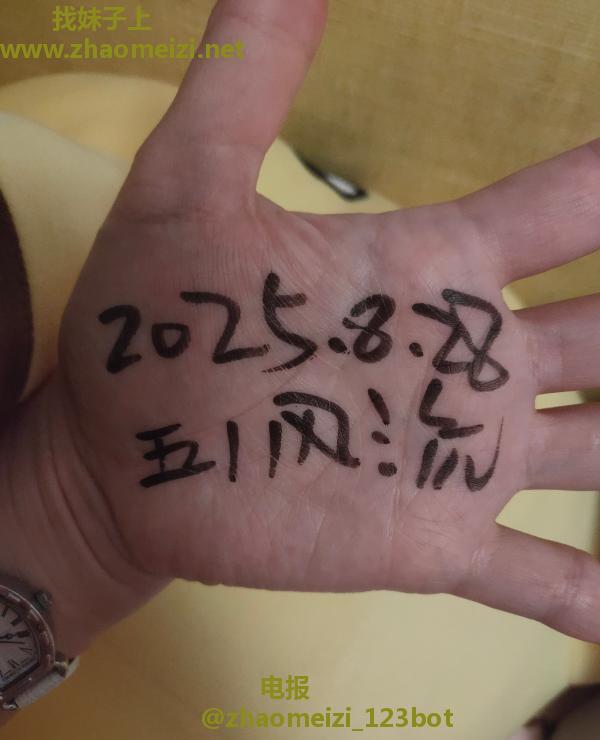 找妹子上
www.zhaomeizi.net
2025.8.28
五川风流
电报
@zhaomeizi_123bot